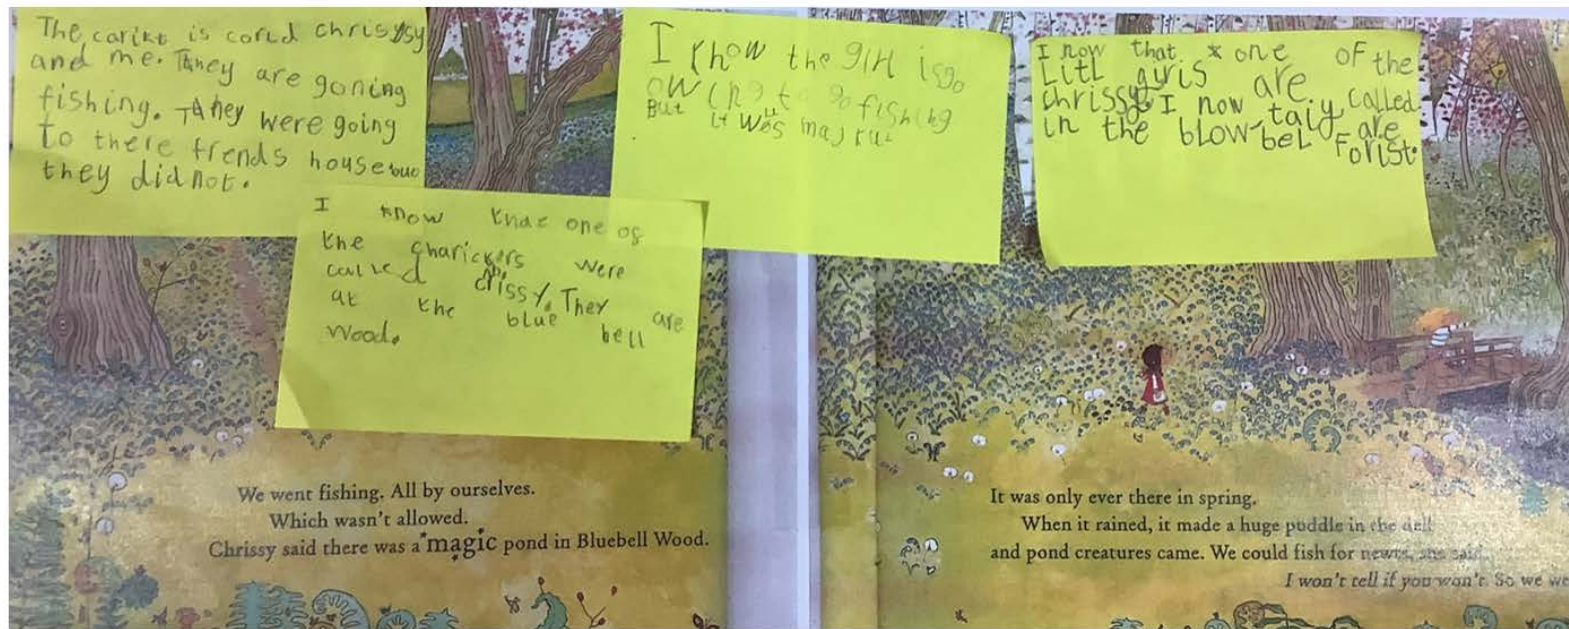 The carikt is corld chrissysy
and me. Thney are goning
fishing. Tahey were going
to there frends house buo
they did not.
I know that one of
the charickers were
called crissy. They are
at the blue bell
wood.
I know the girl is go
owing to go fishing
But it was
I now that one of the
Litl gyris are
chrissy I now taiy called
in the blow-bel are
Forist.
We went fishing. All by ourselves.
Which wasn't allowed.
Chrissy said there was a magic pond in Bluebell Wood.
It was only ever there in spring.
When it rained, it made a huge puddle in the dell
and pond creatures came. We could fish for newts, she said.
I won't tell if you won't. So we we